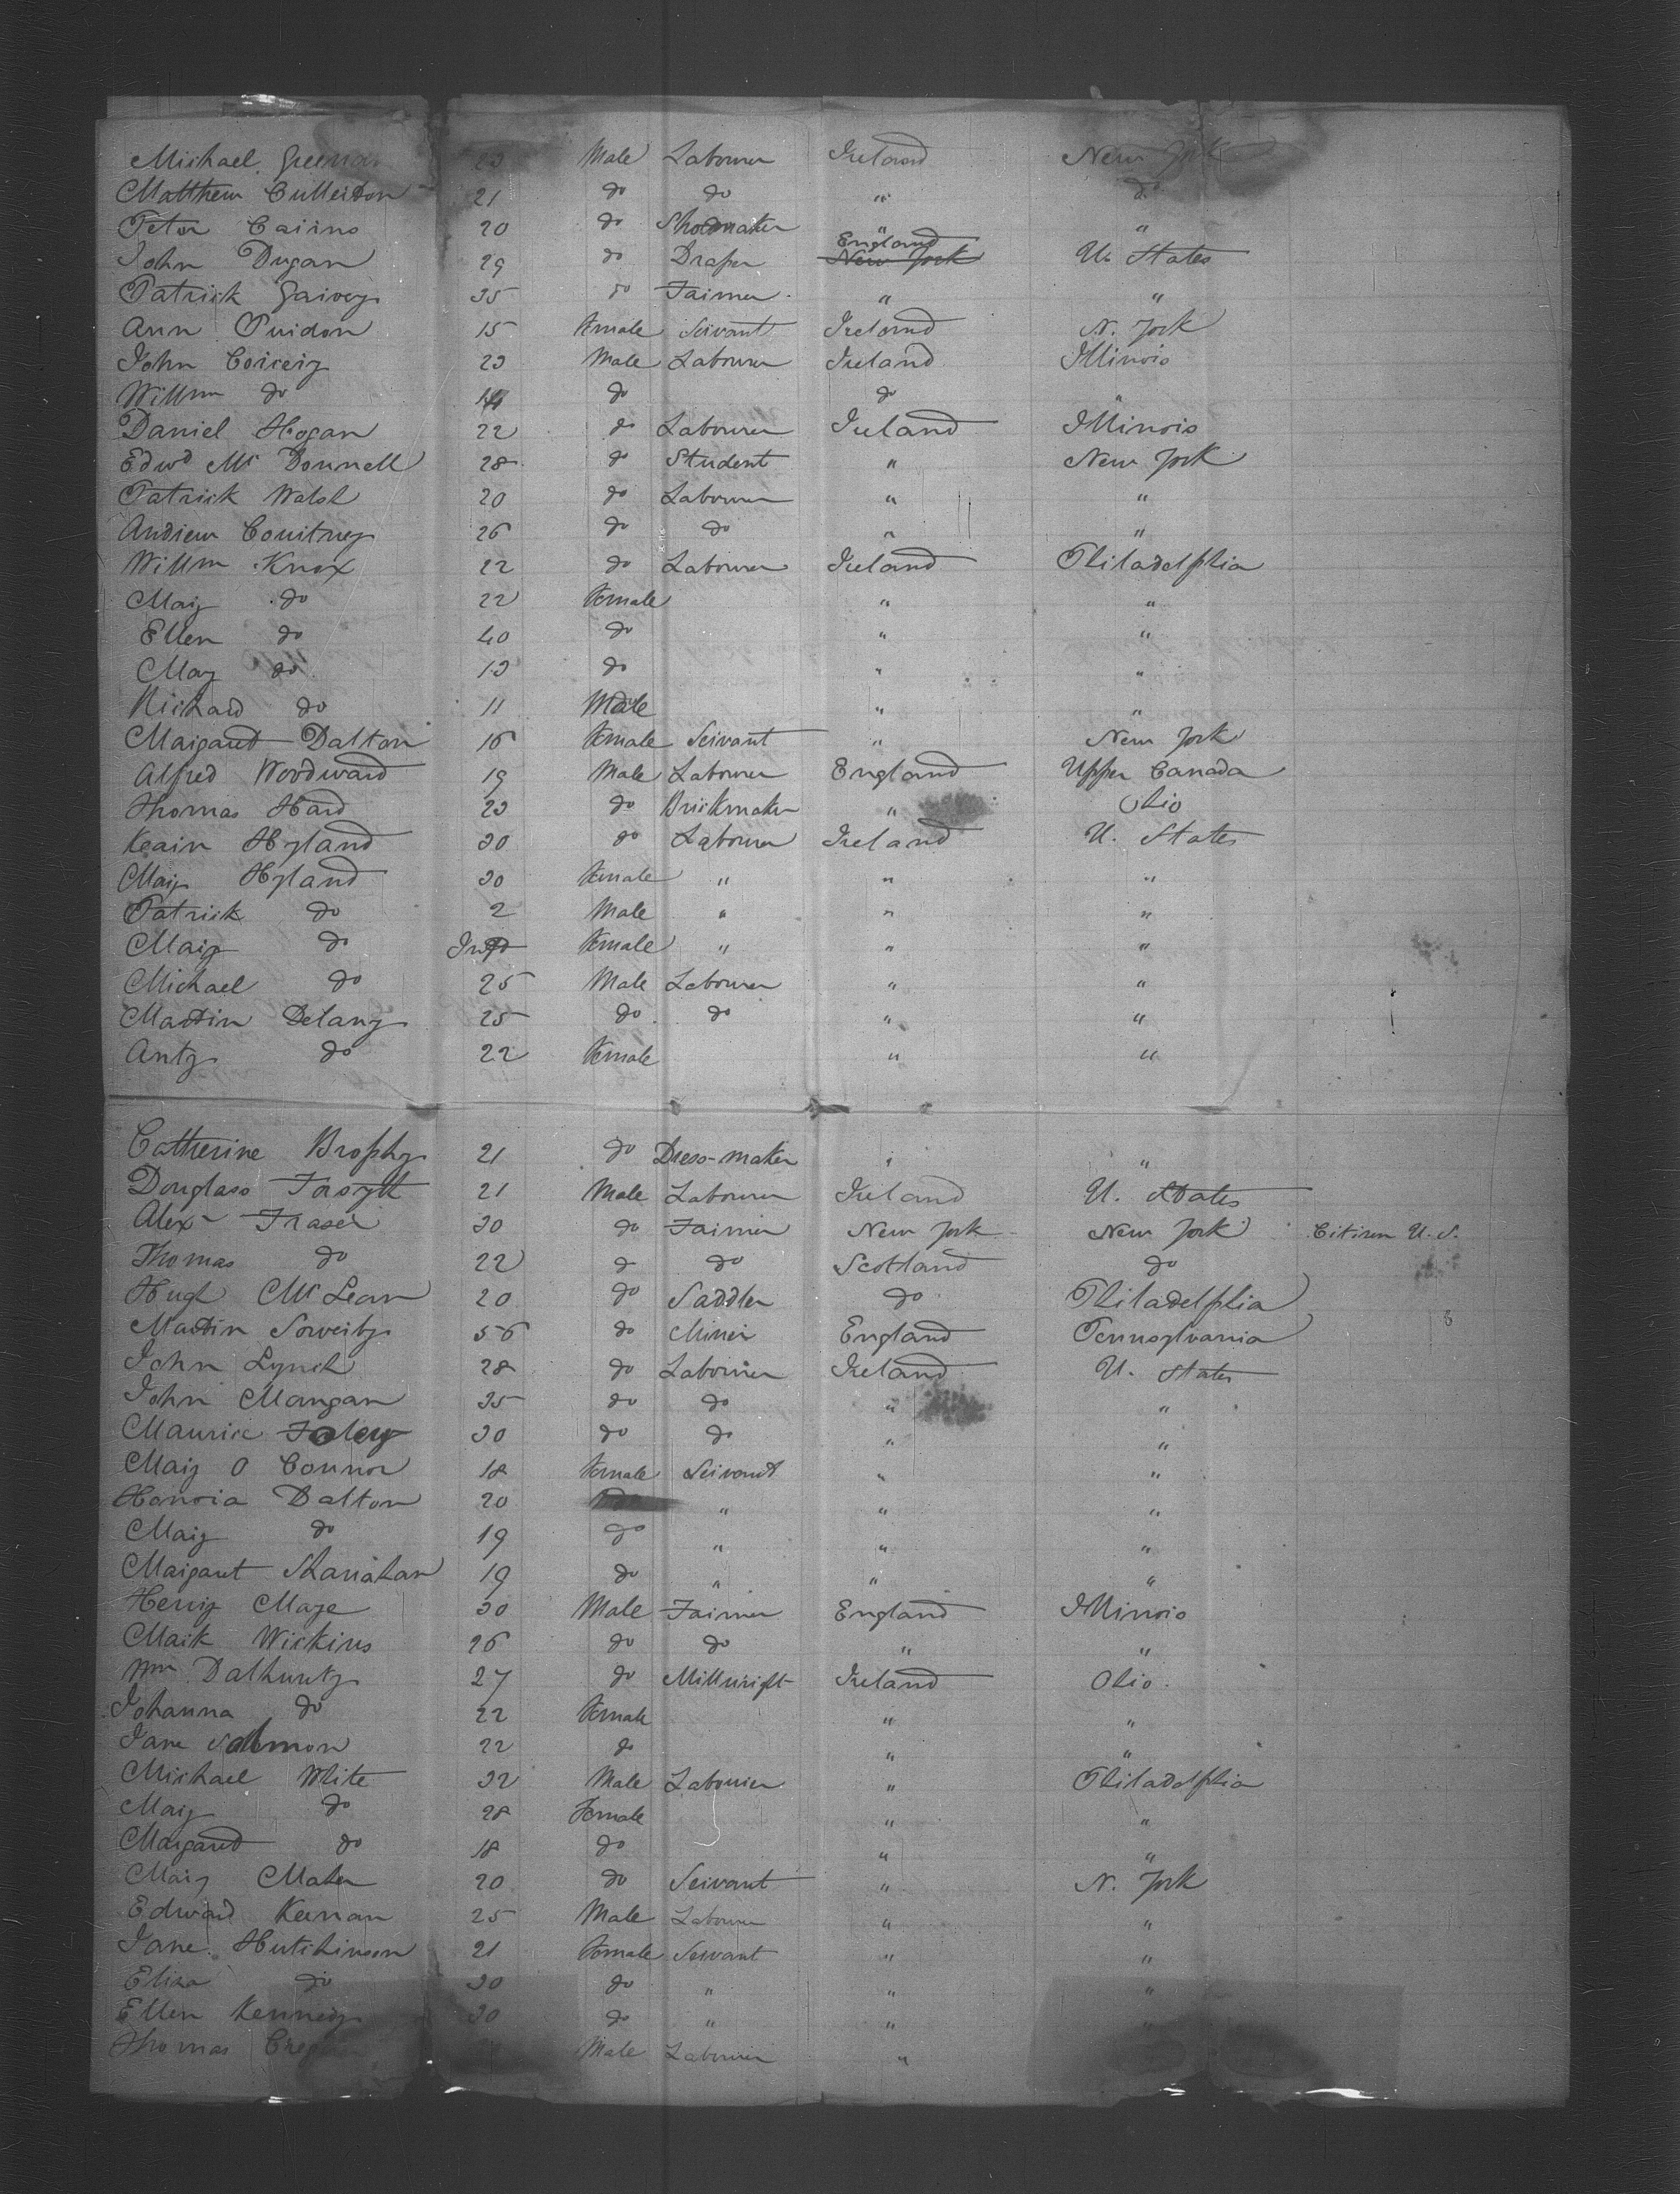 Michael 23 Male Labourer Ireland New York
Matthew Culleiton 21 do do " do
Peter Cairns 20 do Shoemaker "
"
John Dugan 29 do Draper England New York U. States
Patrick Garvey 35 do Farmer " "
Ann Purdon 15 female Servant Ireland N. York
John 23 Male Labourer Ireland Illinois
Willm do 14 do do "
Daniel Hogan 22 do Labourer Ireland Illinois
Edwd Mc Donnell 28 do Student " New York
Patrick Walsh 20 do Labourer " "
Andrew Courtney 26 do do " "
Willm Knox 22 do Labourer Ireland Philadelphia
Mary do 22 female " "
Ellen do 40 do " "
Mary do 13 do " "
Richard do 11 Male " "
Margaret Dalton 16 female Servant " New York
Alfred Woodward 19 Male Labourer England Upper Canada
Thomas Hard 23 do Brickmaker " Ohio
Kearn Hyland 30 do Labourer Ireland U. States
Mary Hyland 30 female " " "
Patrick do 2 Male " " "
Mary do Inft female " " "
Michael do 25 Male Labourer " "
Martin Delany 25 do do " "
Anty do 22 female " "
Catherine Brophy 21 do Dress-maker " "
Douglass Forsyth 21 Male Labourer Ireland U. States
Alexr Fraser 30 do Farmer New York New York Citizen U. S.
Thomas do 22 do do Scotland do
Hugh McLean 20 do Saddler do Philadelphia
Martin Sowerby 56 do Miner England Pennsylvania
John Lynch 28 do Labourer Ireland U. States
John Mangan 35 do do " "
Maurice Foley 30 do do " "
Mary O Connor 18 female Servant " "
Honoria Dalton 20 do " " "
Mary do 19 do " " "
Margaret Shanahan 19 do " " "
Henry Maye 30 Male Farmer England Illinois
Mark Wickins 26 do do " "
Wm Dalhunty 27 do Millwright Ireland Ohio
Johanna do 22 female " "
Jane Salmon 22 do " "
Michael White 32 Male Labourer " Philadelphia
Mary do 28 Female " "
Margaret do 18 do " "
Mary Maher 20 do Servant " N. York
Edward Keenan 25 Male Labourer " "
Jane Hutchinson 21 female Servant " "
Eliza do 30 do " " "
Ellen Kennedy 30 do " " "
Thomas Male Labourer "